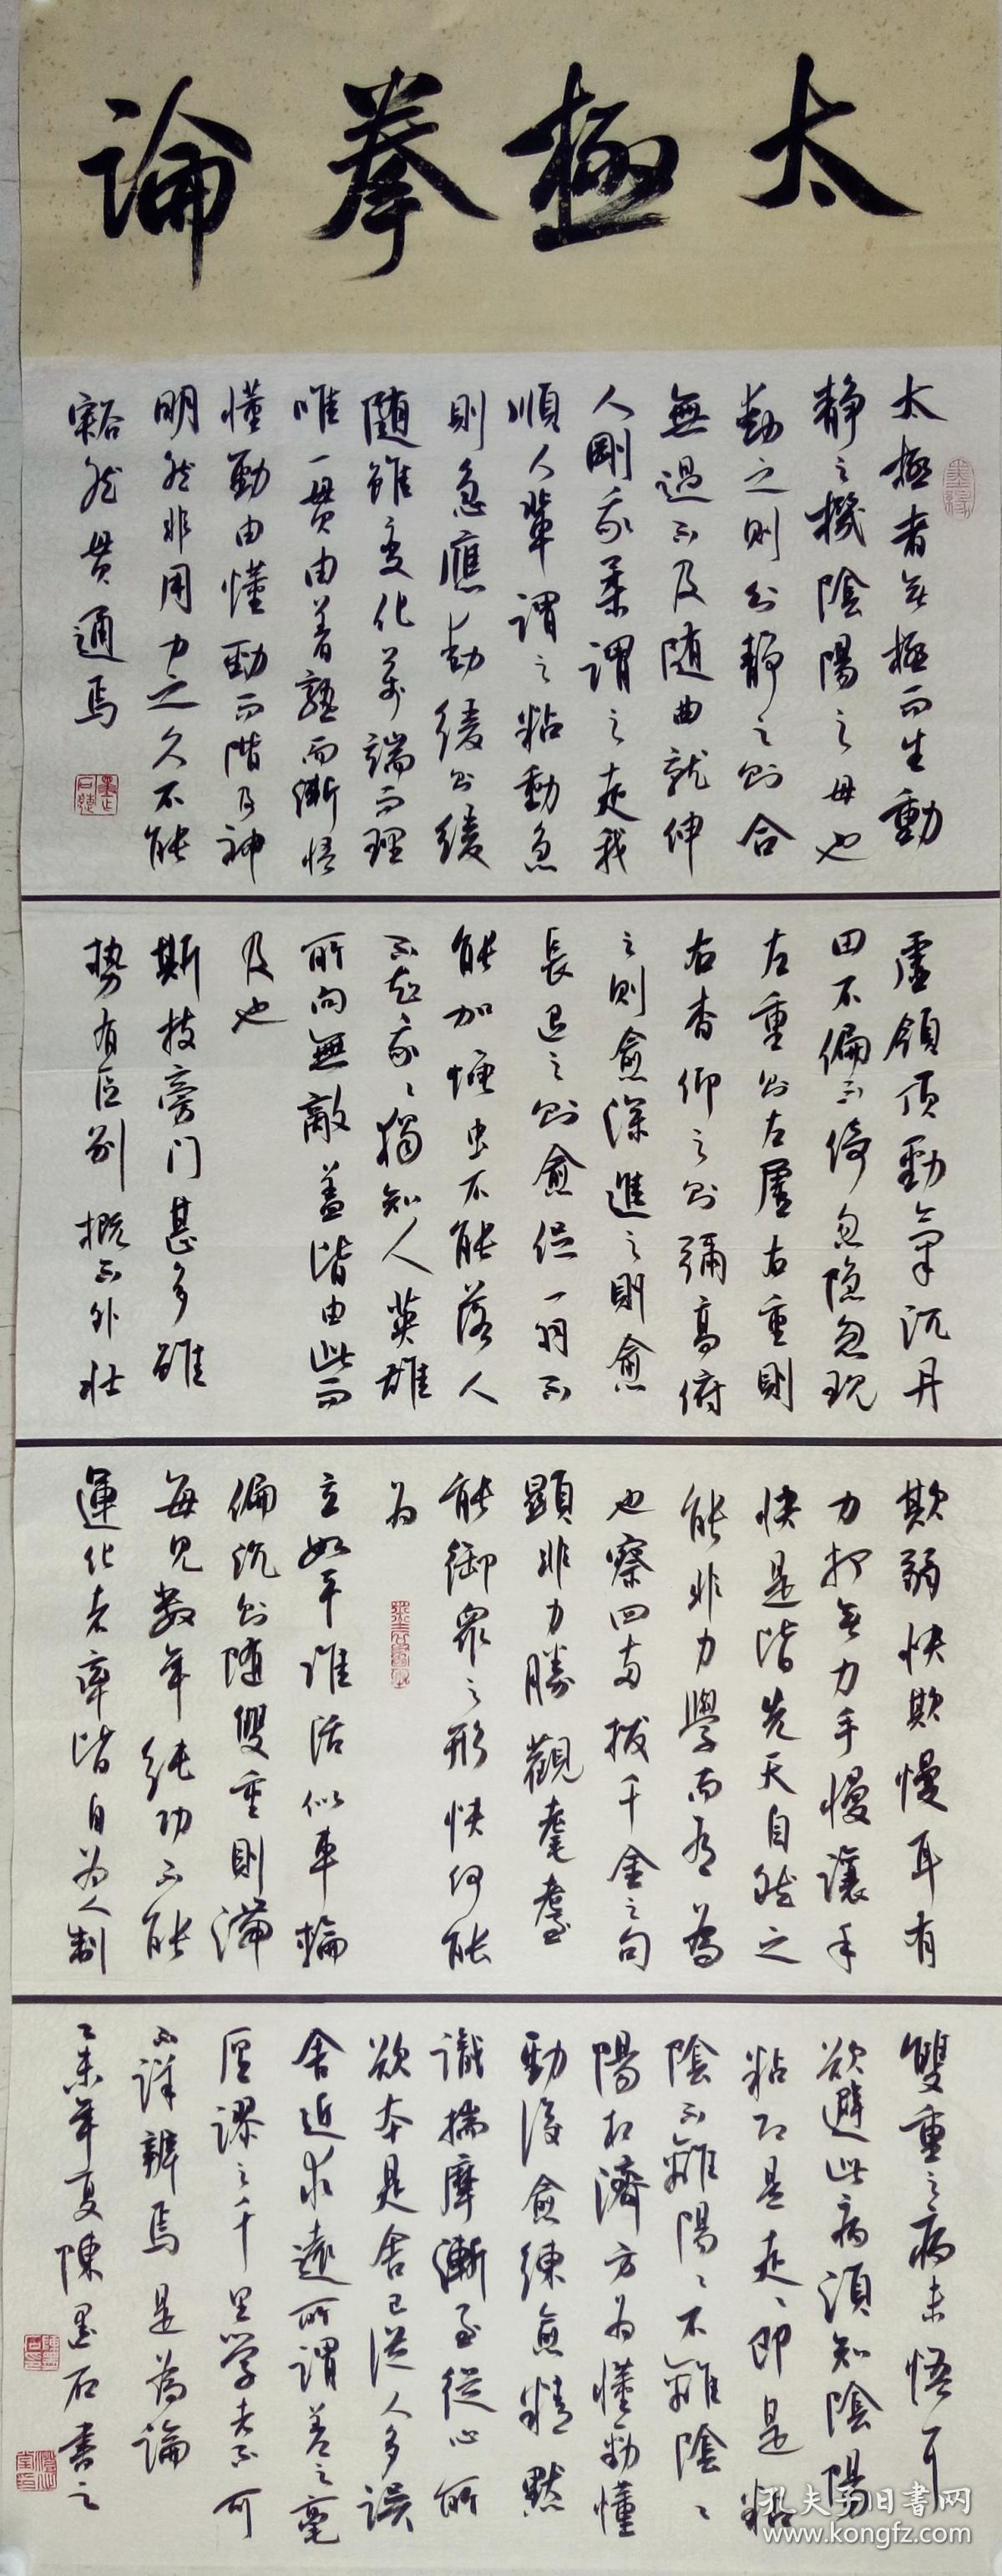 太極拳論
太極者無極而生動
静之機陰陽之母也
動之則分静之則合
無過不及随曲就伸
人剛我柔謂之走我
順人輩謂之粘動急
則急應動緩則緩
随雖变化萬端而理
唯一貫由着熟而漸悟
懂勁由懂勁而階及神
明然非用力之久不能
豁然貫通焉
虚領顶勁氣沉丹
田不偏不倚忽隐忽现
左重則左虚右重則
右杳仰之則彌高俯
之則愈深進之則愈
長退之則愈促一羽不
能加蝇虫不能落人
不知我我獨知人英雄
所向無敵盖皆由此而
及也
斯技旁门甚多雖
势有区别概不外壮
欺弱快欺慢耳有
力打無力手慢讓手
快是皆先天自然之
能非力學而有為
也察四両拨千金之句
顕非力勝觀耄耋
能御衆之形快何能
为
立如平准活似車輪
偏沉則随雙重則滞
每见数年純功不能
運化者率皆自为人制
雙重之病未悟耳
欲避此病須知陰陽
粘即是走走即是粘
陰不離陽陽不離陰陰
陽相濟方为懂勁懂
勁後愈練愈精黙
識揣摩漸至從心所
欲本是舍己從人多误
舍近求遠所謂差之毫
厘謬之千里學者不可
不詳辨焉是為論
乙未年夏陳墨石書之
孔夫子旧書网
www.kongfz.com